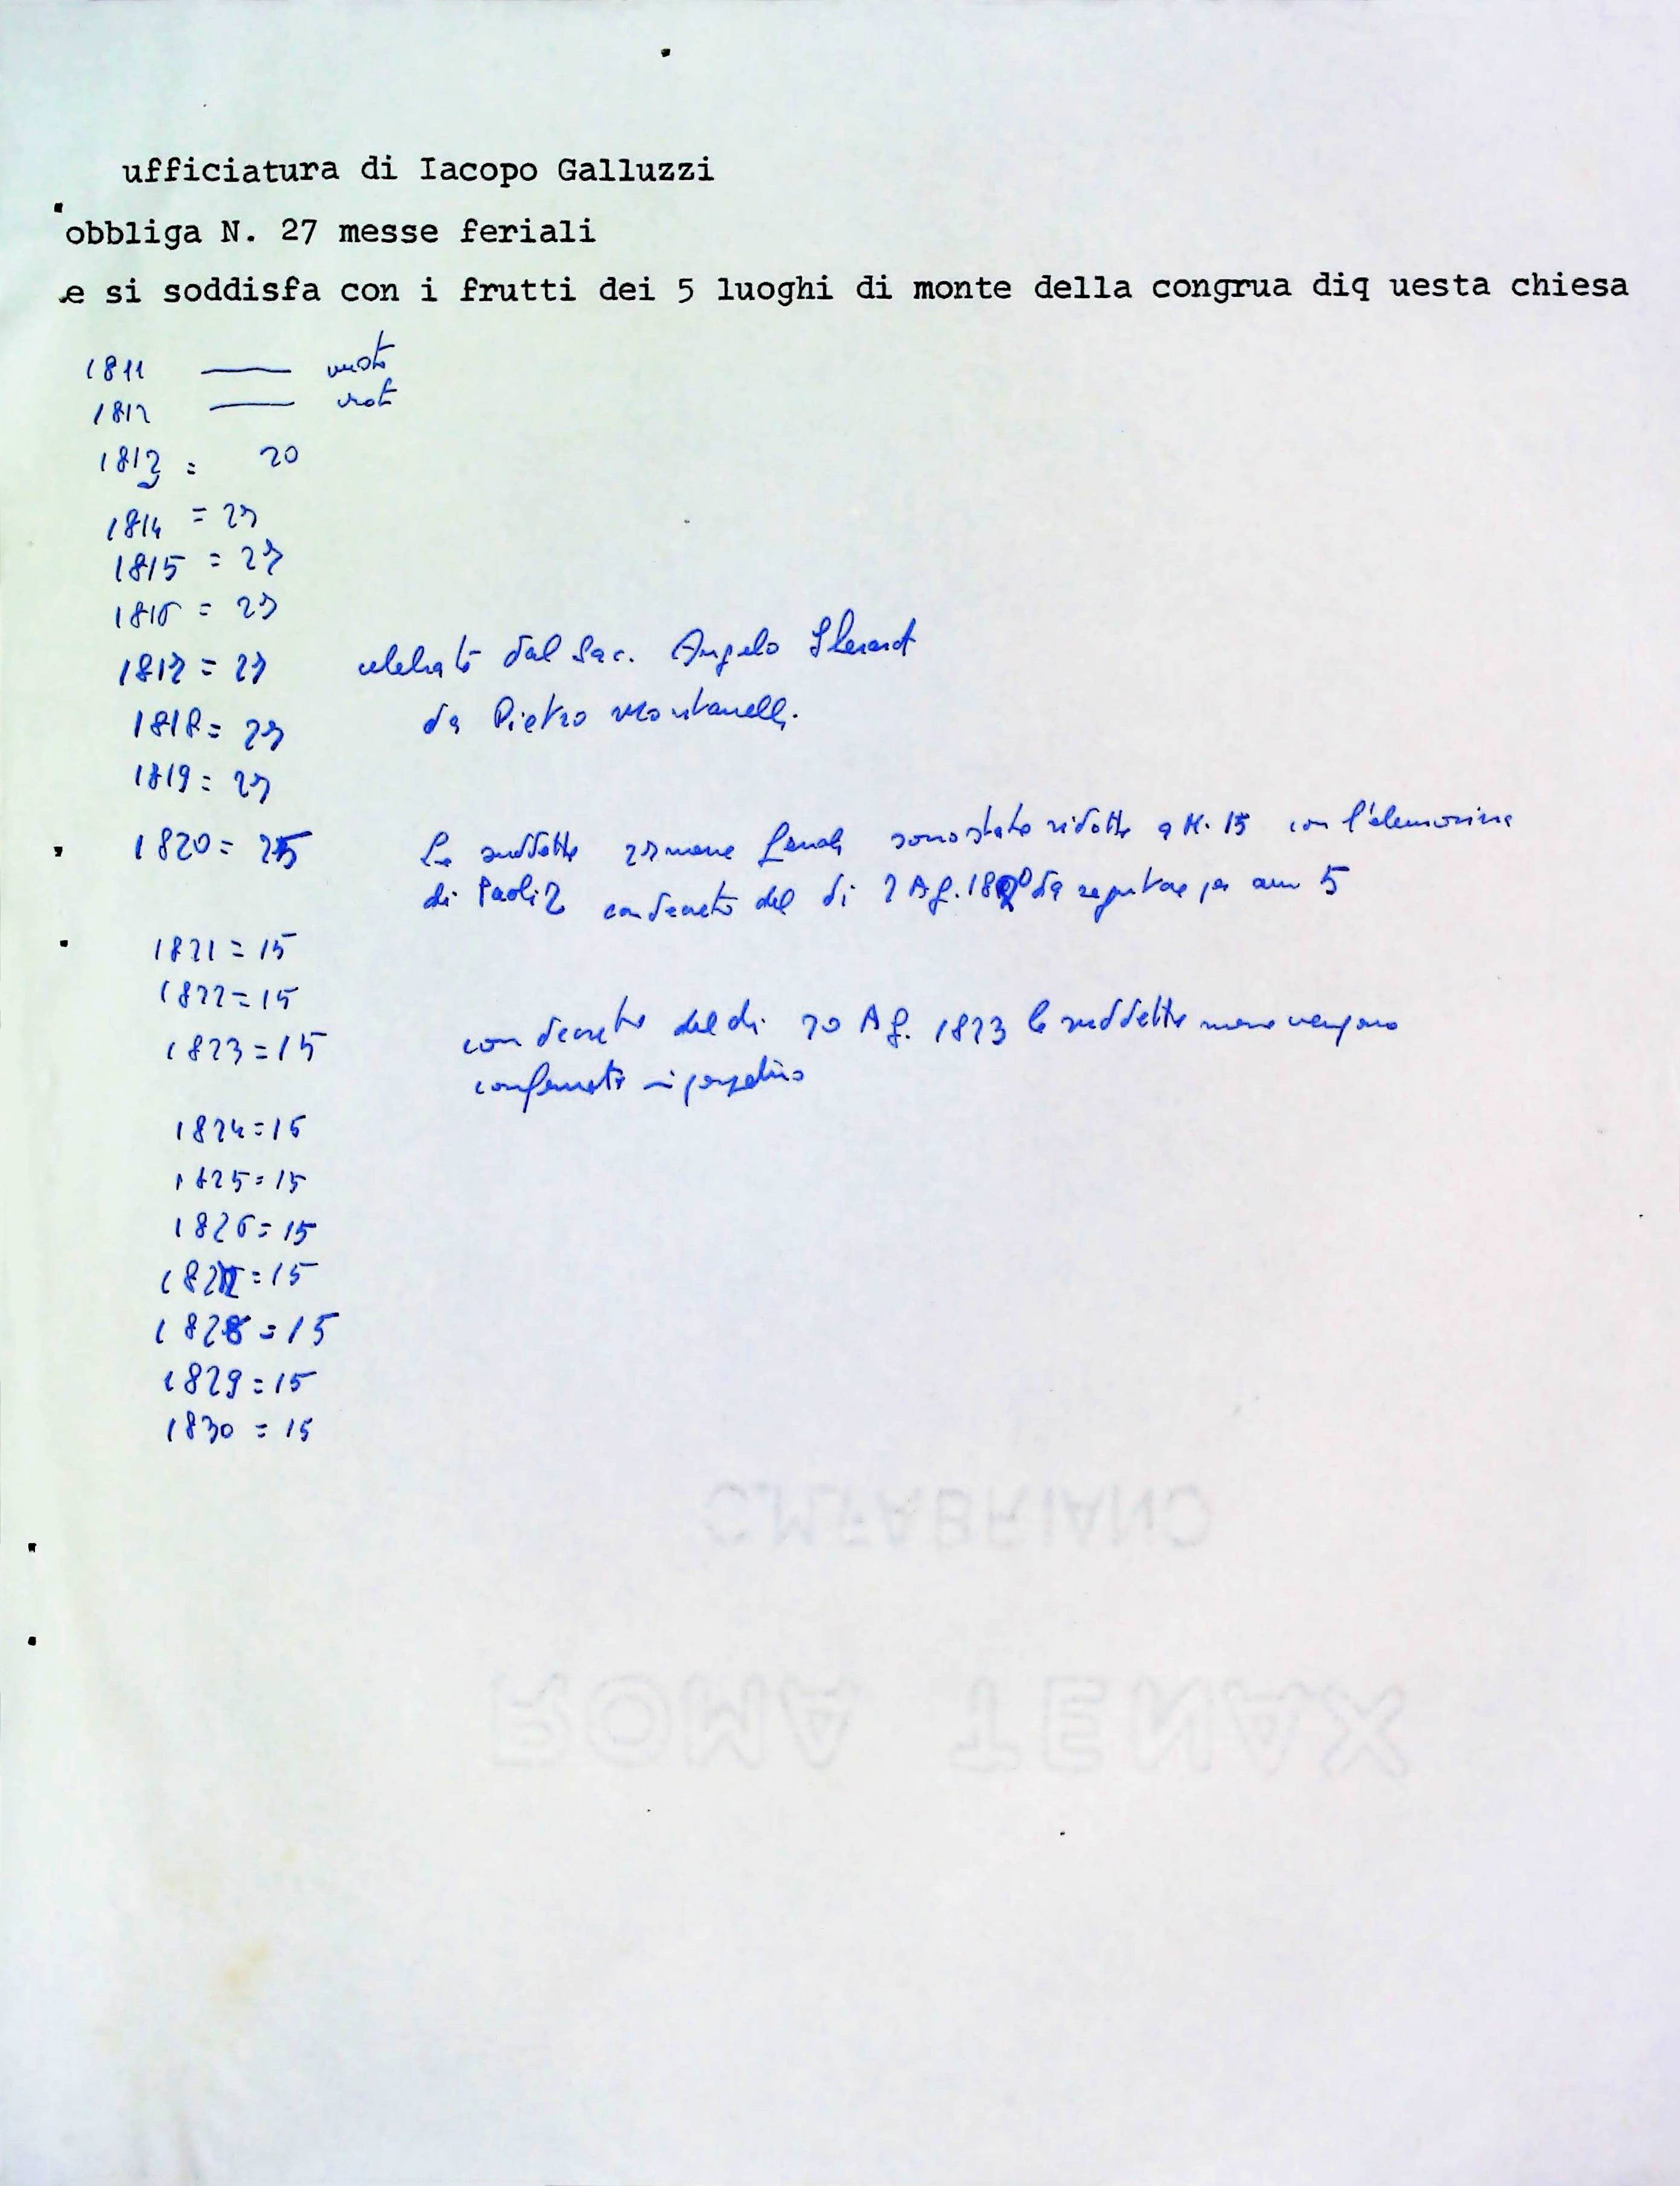 ufficiatura di Iacopo Galluzzi
obbliga N. 27 messe feriali
e si soddisfa con i frutti dei 5 luoghi di monte della congrua diq uesta chiesa
1811 — vuoto
1812 — vuoto
1813 = 20
1814 = 27
1815 = 27
1816 = 27
1817 = 27 celebrate dal Sac. Angelo
1818 = 27 da Pietro Montanelli.
1819 = 27
1820 = 25 Le suddette 27 messe feriali sono state ridotte a N. 15 con l'elemosina
di Paoli 2 con decreto del di 2 Ag. 1820 da seguitare per anni 5
1821 = 15
1822 = 15
1823 = 15 con decreto del di 20 Ag. 1823 le suddette messe vengono
confermate in perpetuo
1824 = 15
1825 = 15
1826 = 15
1827 = 15
1828 = 15
1829 = 15
1830 = 15
C.M.FABRIANO
ROMA TENAX